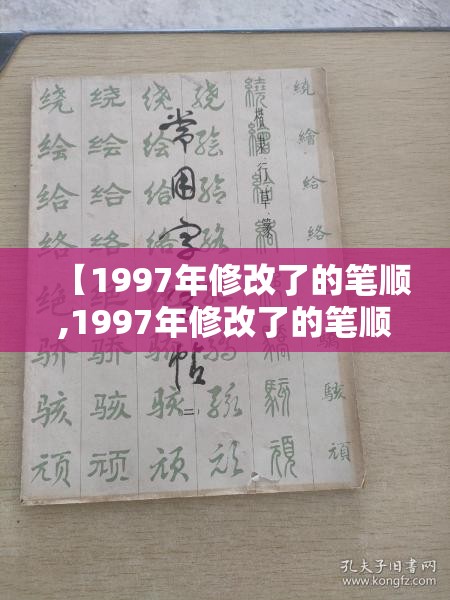 绕 绕 绕 绕 繞 繞
绘 绘 绘 绘 繪 繪
给 给 给 给 給 給
络 络 络
常用字字帖
二
楷 隶 行 草 篆
【1997年修改了的笔顺
,1997年修改了的笔顺
骇 骇 骇 骇 駭 駭
顽 顽 顽 顽 頑 頑
孔夫子旧书网
www.kongfz.com